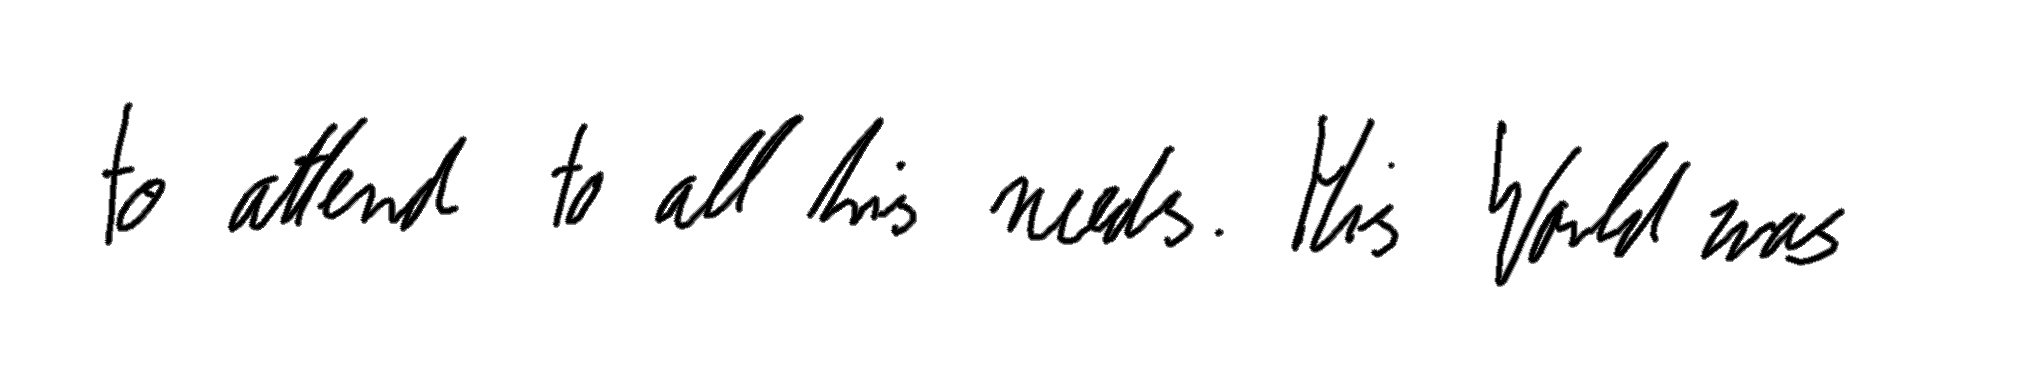 to attend to all his needs. His World was